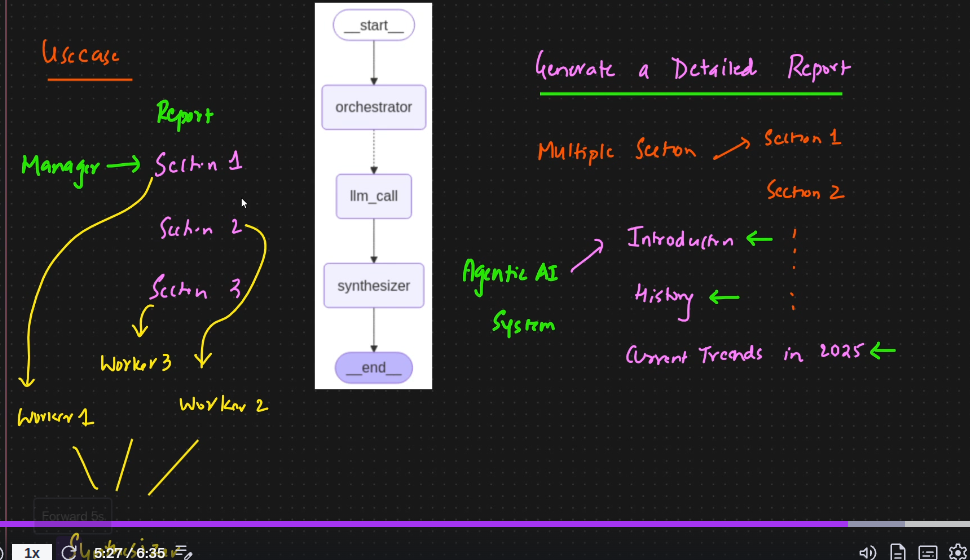 Usecase
Report
Manager → Section 1
Section 2
Section 3
Worker 3
Worker 2
Worker 1
Synthesizer
__start__
orchestrator
llm_call
synthesizer
__end__
Generate a Detailed Report
Multiple Section → Section 1
Section 2
Agentic AI
System
Introduction ←
History ←
Current Trends in 2025 ←
Forward 5s
1x
5:27 / 6:35